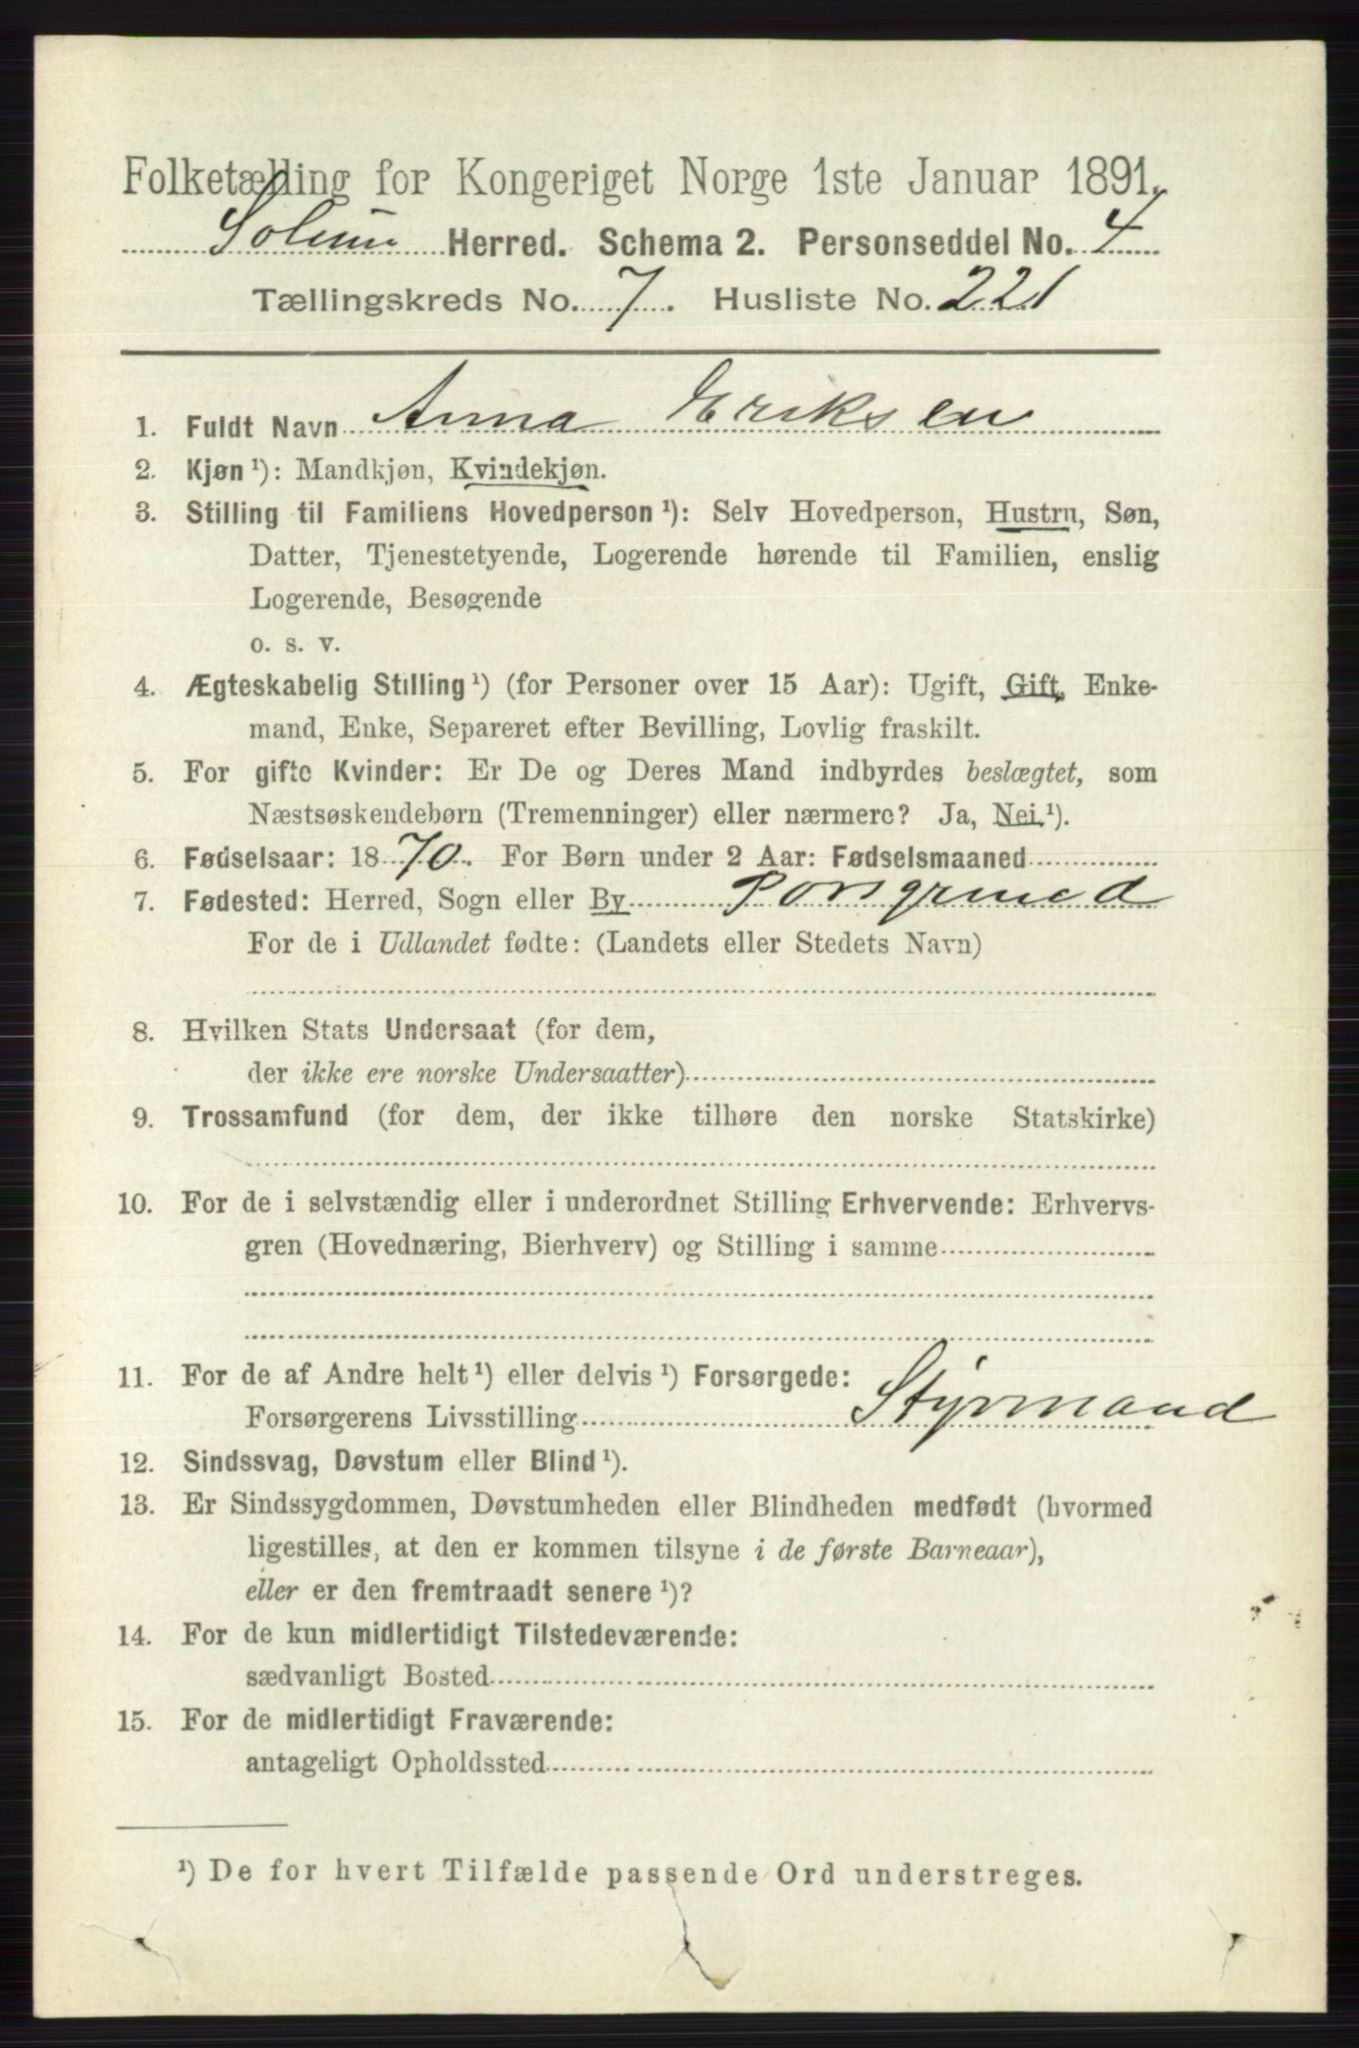 Folketælling for Kongeriget Norge 1ste Januar 1891.
Solum Herred. Schema 2. Personseddel No. 4
Tællingskreds No. 7. Husliste No. 221
1. Fuldt Navn Anna Eriksen
2. Kjøn ¹): Mandkjøn, Kvindekjøn.
3. Stilling til Familiens Hovedperson ¹): Selv Hovedperson, Hustru, Søn,
Datter, Tjenestetyende, Logerende hørende til Familien, enslig
Logerende, Besøgende
o. s. v.
4. Ægteskabelig Stilling ¹) (for Personer over 15 Aar): Ugift, Gift, Enke-
mand, Enke, Separeret efter Bevilling, Lovlig fraskilt.
5. For gifte Kvinder: Er De og Deres Mand indbyrdes beslægtet, som
Næstsøskendebørn (Tremenninger) eller nærmere? Ja, Nei ¹).
6. Fødselsaar: 1870. For Børn under 2 Aar: Fødselsmaaned
7. Fødested: Herred, Sogn eller By Porsgrund
For de i Udlandet fødte: (Landets eller Stedets Navn)
8. Hvilken Stats Undersaat (for dem,
der ikke ere norske Undersaatter)
9. Trossamfund (for dem, der ikke tilhøre den norske Statskirke)
10. For de i selvstændig eller i underordnet Stilling Erhvervende: Erhvervs-
gren (Hovednæring, Bierhverv) og Stilling i samme
11. For de af Andre helt ¹) eller delvis ¹) Forsørgede:
Forsørgerens Livsstilling Styrmand
12. Sindssvag, Døvstum eller Blind ¹).
13. Er Sindssygdommen, Døvstumheden eller Blindheden medfødt (hvormed
ligestilles, at den er kommen tilsyne i de første Barneaar),
eller er den fremtraadt senere ¹)?
14. For de kun midlertidigt Tilstedeværende:
sædvanligt Bosted
15. For de midlertidigt Fraværende:
antageligt Opholdssted
¹) De for hvert Tilfælde passende Ord understreges.